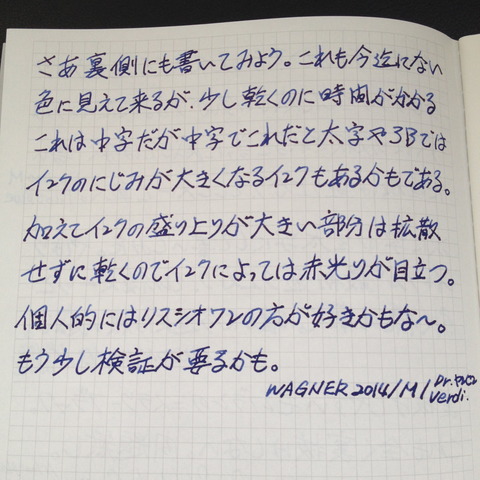 さあ裏側にも書いてみよう。これも今迄にない
色に見えて来るが、少し乾くのに時間がかかる
これは中字だが中字でこれだと太字や3Bでは
インクのにじみが大きくなるインクもあるかもである。
加えてインクの盛り上りが大きい部分は拡散
せずに乾くのでインクによっては赤光りが目立つ。
個人的にはリスシオワンの方が好きかもな〜。
もう少し検証が要るかも。
WAGNER 2014/M/Dr.
Verdi.